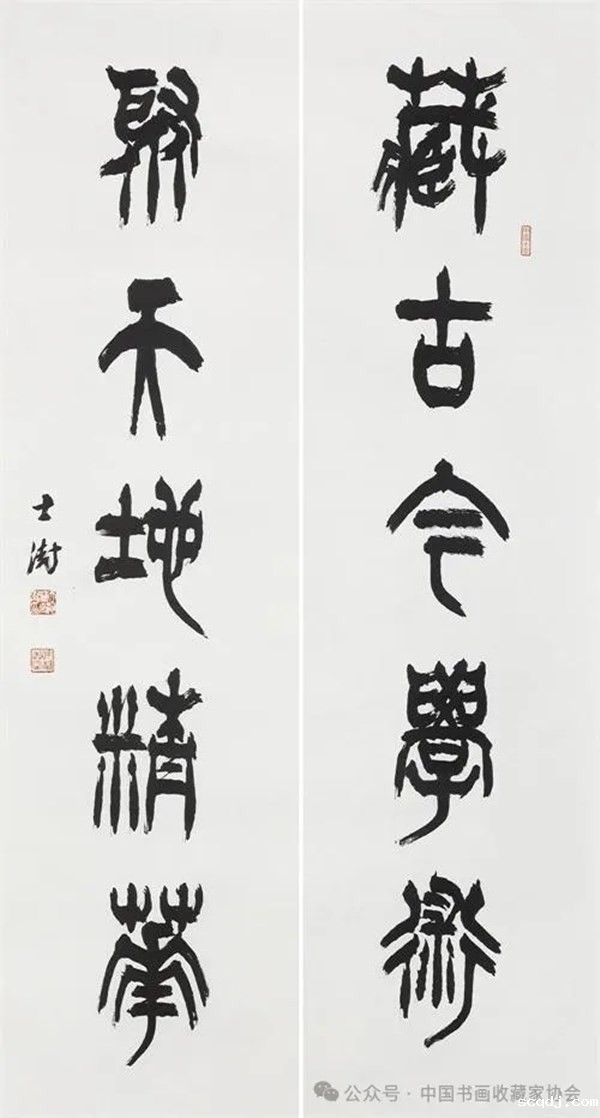 藏古今學術
聚天地精華
士澍
公众号·中国书画收藏家协会
scqdj.com